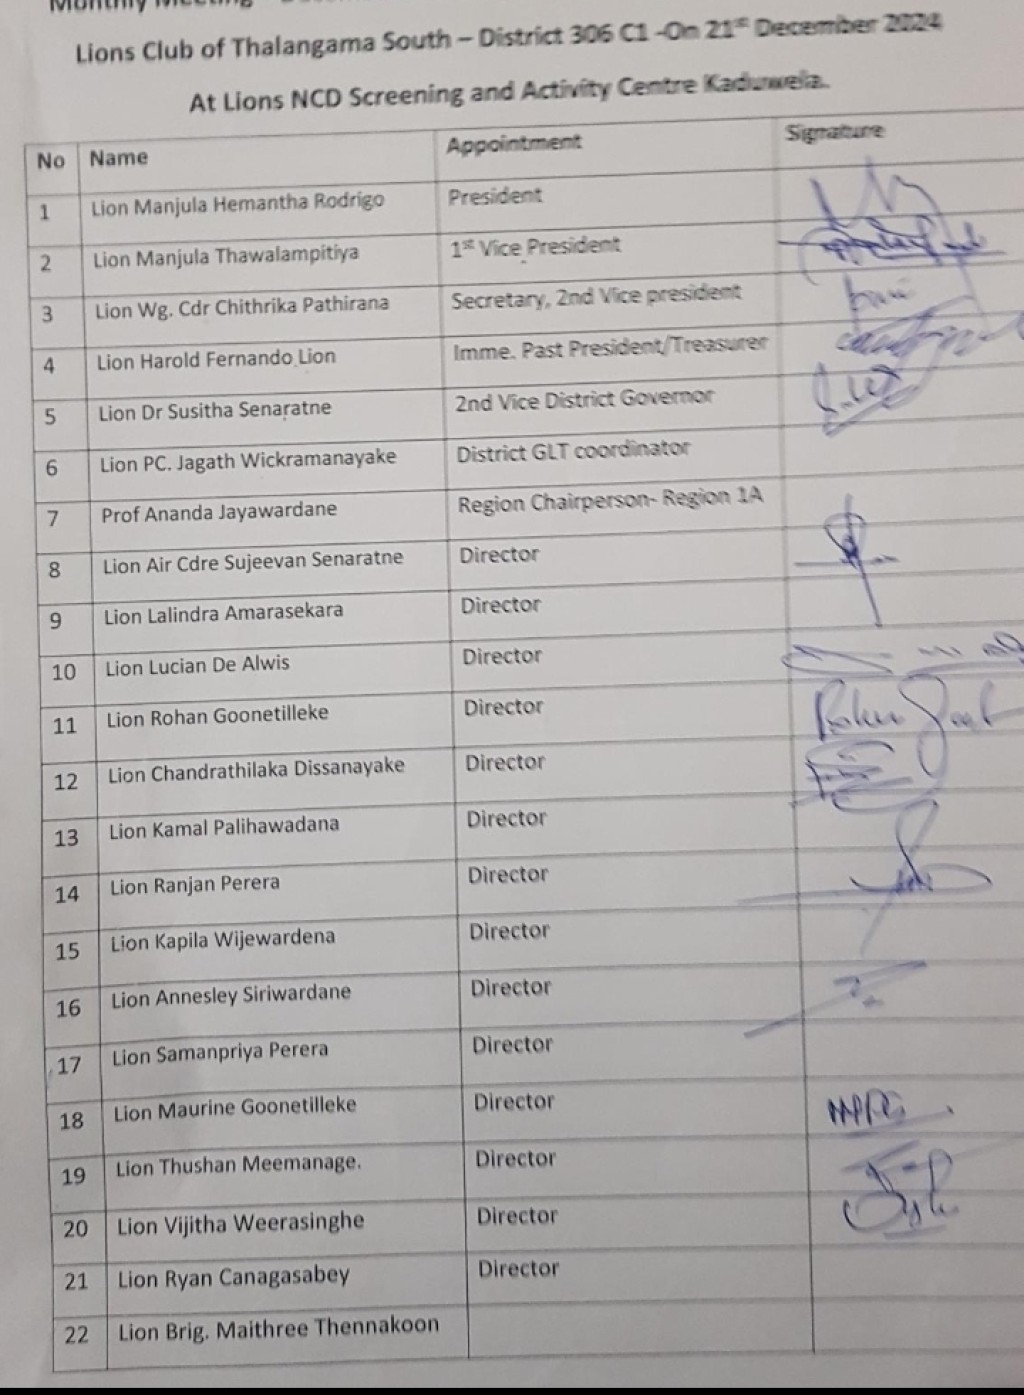 Monthly Meeting -
Lions Club of Thalangama South – District 306 C1 -On 21st December 2024
At Lions NCD Screening and Activity Centre Kaduwela.
No Name Appointment Signature
1 Lion Manjula Hemantha Rodrigo President
2 Lion Manjula Thawalampitiya 1st Vice President
3 Lion Wg. Cdr Chithrika Pathirana Secretary, 2nd Vice president
4 Lion Harold Fernando Lion Imme. Past President/Treasurer
5 Lion Dr Susitha Senaratne 2nd Vice District Governor
6 Lion PC. Jagath Wickramanayake District GLT coordinator
7 Prof Ananda Jayawardane Region Chairperson- Region 1A
8 Lion Air Cdre Sujeevan Senaratne Director
9 Lion Lalindra Amarasekara Director
10 Lion Lucian De Alwis Director
11 Lion Rohan Goonetilleke Director
12 Lion Chandrathilaka Dissanayake Director
13 Lion Kamal Palihawadana Director
14 Lion Ranjan Perera Director
15 Lion Kapila Wijewardena Director
16 Lion Annesley Siriwardane Director
17 Lion Samanpriya Perera Director
18 Lion Maurine Goonetilleke Director
19 Lion Thushan Meemanage. Director
20 Lion Vijitha Weerasinghe Director
21 Lion Ryan Canagasabey Director
22 Lion Brig. Maithree Thennakoon